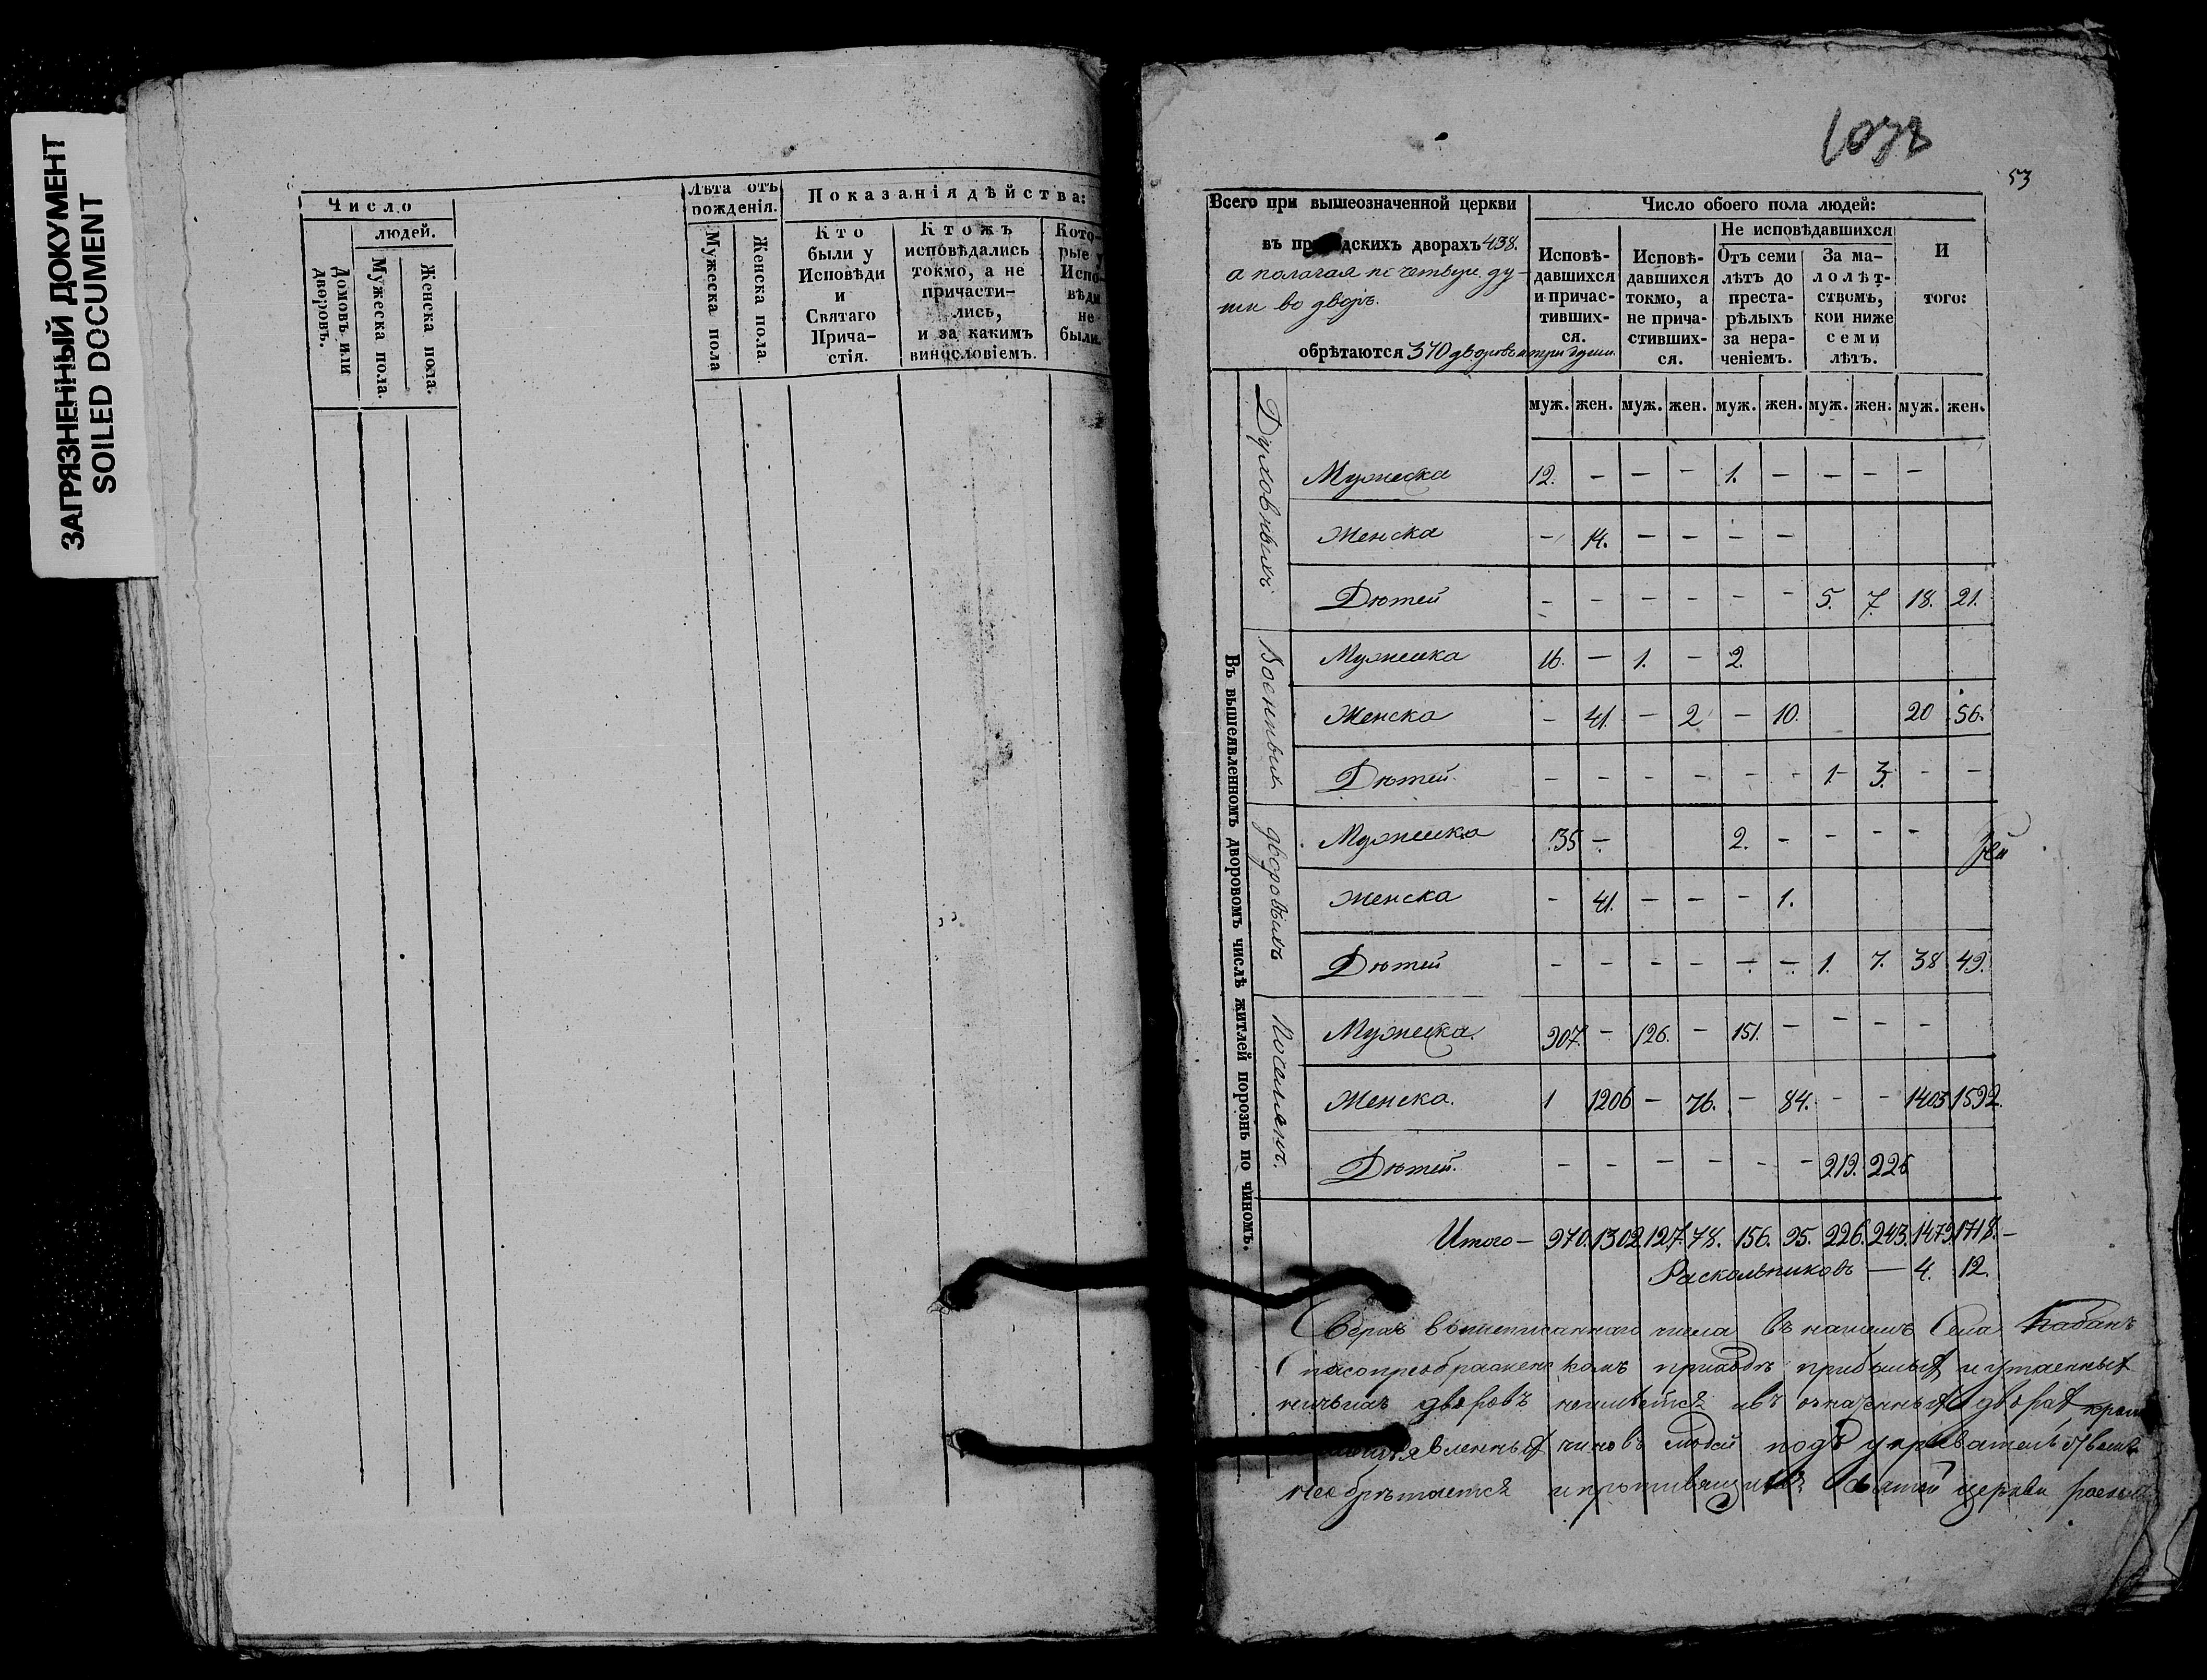 ЗАГРЯЗНЕННЫЙ ДОКУМЕНТ
SOILED DOCUMENT
Число
людей.
Домовъ или дворовъ.
Мужеска пола.
Женска пола.
Лѣта отъ рожденія.
Мужеска пола
Женска пола.
Показанія дѣйства:
Кто были у Исповѣди и Святаго Прича-
стія.
Ктожъ исповѣдались токмо, а не причасти-
лись, и за какимъ винословіемъ.
Кото-
рые у Испо-
вѣди не были.
53
Всего при вышеозначенной церкви
въ приходскихъ дворахъ 438.
а полагая по четыре ду-
ши во дворъ.
обрѣтаются 370 дворовъ и три души.
Число обоего пола людей:
Исповѣ-
давшихся
и причас-
тивших-
ся.
Исповѣ-
давшихся
токмо, а
не прича-
стивших-
ся.
Не исповѣдавшихся
Отъ семи
лѣтъ до
преста-
рѣлыхъ
за нера-
ченіемъ.
За ма-
лолѣт-
ствомъ,
кои ниже
семи
лѣтъ.
И
того:
муж. жен. муж. жен. муж. жен. муж. жен. муж. жен.
Въ вышеявленномъ дворовомъ числѣ житлей порознь по чиномъ.
Духовныхъ
Мужеска 12. – – – 1. – – – –
Женска – 14. – – – –
Дѣтей – – – – – – 5. 7. 18. 21.
Военныхъ
Мужеска 16. – 1. – 2.
Женска – 41. – 2 – 10. 20 56.
Дѣтей. – – – – – – 1. 3. – –
дворовыхъ
Мужеска 35 – 2. – – – –
Женска – 41. – – – 1.
Дѣтей – – – – – – 1. 7. 38 49.
Поселянъ.
Мужеска. 907. – 126. – 151. – – – –
Женска. 1 1206 – 76. – 84. – – 1403 1592.
Дѣтей. – – – – – – 219. 226
Итого – 970. 1302. 127. 78. 156. 95. 226. 243. 1479. 1718. –
Раскольниковъ — 4. 12.
Сверхъ вышеписаннаго числа въ нашемъ Села Кабанъ
Спасопреображенскомъ приходѣ прибылых и утаенных
дворовъ неимѣется
чиновъ людей подъ
необрѣтается Святой церкви